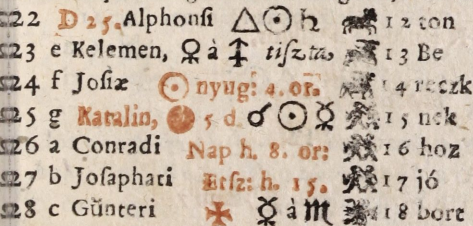 22 D 25. Alphonſi △ ☉ ♄ 12 ton
23 e Kelemen, ♀ à ♐ tiſzta, 13 Be
24 f Joſiæ ☉ nyug: 4. or. 14 reczk
25 g Katalin, 5 d ☌ ☉ ☿ 15 nek
26 a Conradi Nap h. 8. or: 16 hoz
27 b Joſaphati Etſz: h. 15. 17 jó
28 c Gŭnteri ✠ ☿ à ♏ 18 bort